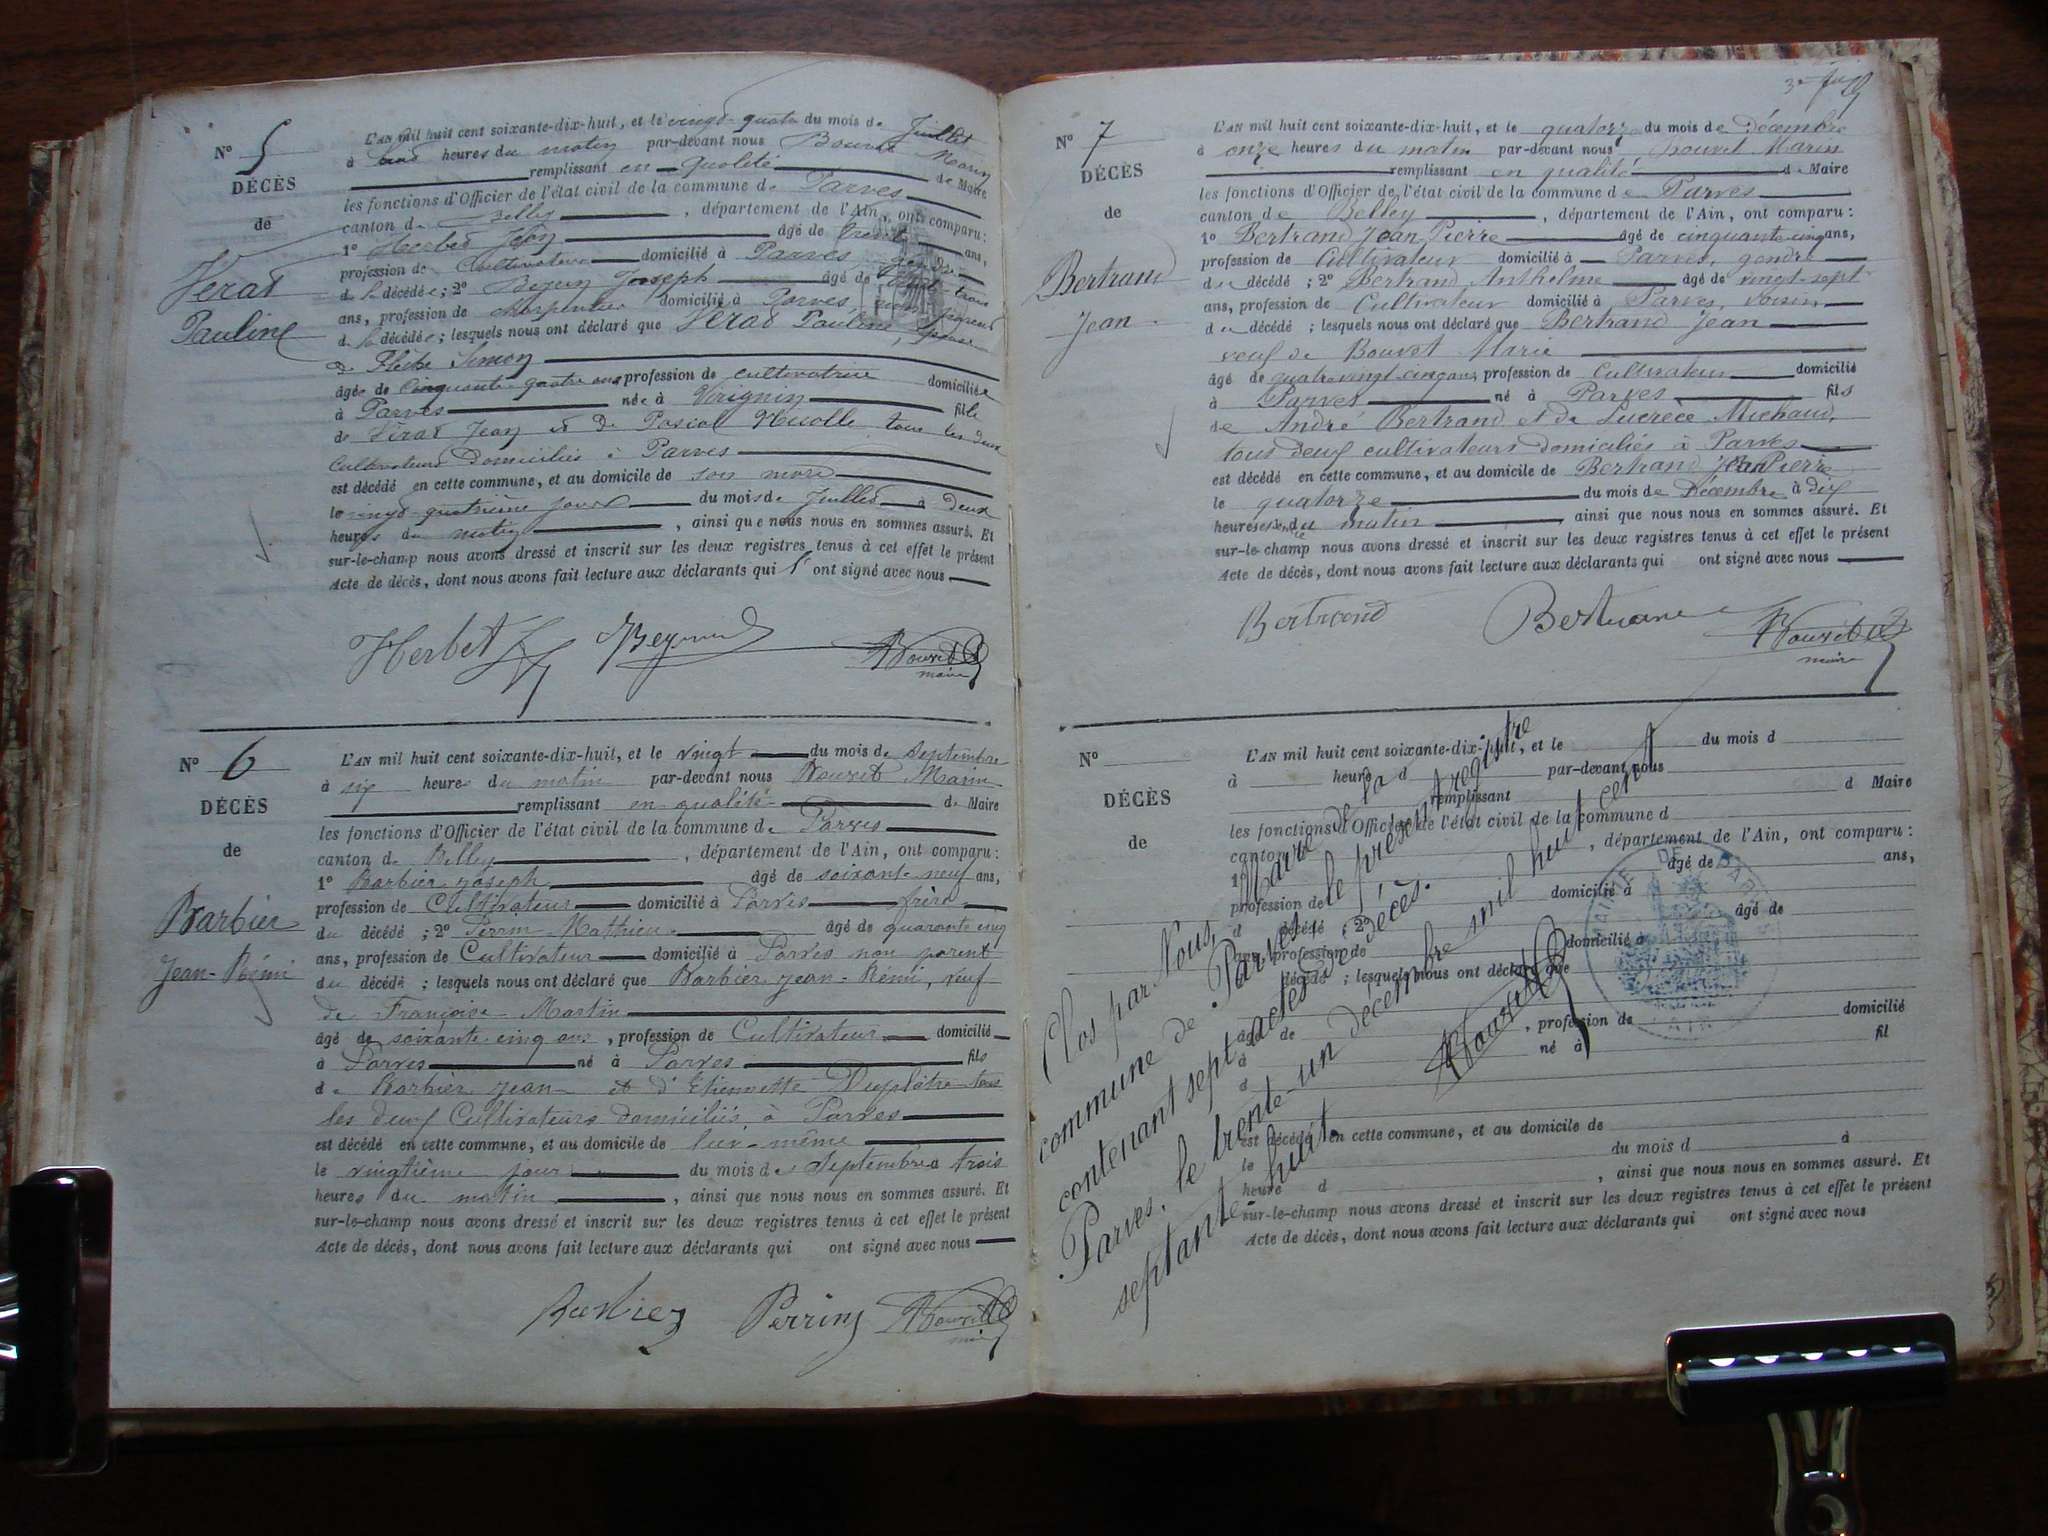 N° 5
DÉCÈS
de
Verat
Pauline
L'AN mil huit cent soixante-dix-huit, et le vingt-quatre du mois de Juillet
à heures du matin par-devant nous Bouvet Marin
remplissant en qualité de Maire
les fonctions d'Officier de l'état civil de la commune de Parves
canton de Belley , département de l'Ain, ont comparu :
1° Herbet Jean âgé de trente ans,
profession de Cultivateur domicilié à Parves gendre
de la décédée ; 2° Joseph âgé de trois
ans, profession de charpentier domicilié à Parves, non parent
de la décédée ; lesquels nous ont déclaré que Verat Pauline, épouse
de Simon
âgée de Cinquante-quatre ans profession de cultivatrice domiciliée
à Parves née à Virignin fille
de Vérat Jean et de Pascal tous les deux
Cultivateurs Domiciliés à Parves
est décédé en cette commune, et au domicile de son mari
le vingt-quatrième jour du mois de Juillet à deux
heures du matin , ainsi que nous nous en sommes assuré. Et
sur-le-champ nous avons dressé et inscrit sur les deux registres tenus à cet effet le présent
Acte de décès, dont nous avons fait lecture aux déclarants qui ont signé avec nous
Herbet Bouvet
maire
N° 6
DÉCÈS
de
Barbier
Jean-Rémi
L'AN mil huit cent soixante-dix-huit, et le vingt du mois de Septembre
à six heures du matin par-devant nous Bouvet Marin
remplissant en qualité de Maire
les fonctions d'Officier de l'état civil de la commune de Parves
canton de Belley , département de l'Ain, ont comparu :
1° Barbier Joseph âgé de soixante-neuf ans,
profession de Cultivateur domicilié à Parves frère
du décédé ; 2° Perrin Mathieu âgé de quarante cinq
ans, profession de Cultivateur domicilié à Parves non parent
du décédé ; lesquels nous ont déclaré que Barbier Jean-Rémi, veuf
de Françoise Martin
âgé de soixante cinq ans , profession de Cultivateur domicilié
à Parves né à Parves fils
de Barbier Jean et d'Etiennette Duplâtre tous
les deux Cultivateurs domiciliés à Parves
est décédé en cette commune, et au domicile de lui-même
le vingtième jour du mois de Septembre à trois
heures du matin , ainsi que nous nous en sommes assuré. Et
sur-le-champ nous avons dressé et inscrit sur les deux registres tenus à cet effet le présent
Acte de décès, dont nous avons fait lecture aux déclarants qui ont signé avec nous
Barbier Perrin Bouvet
N° 7
DÉCÈS
de
Bertrand
Jean
L'AN mil huit cent soixante-dix-huit, et le quatorze du mois de Décembre
à onze heures du matin par-devant nous Bouvet Marin
remplissant en qualité de Maire
les fonctions d'Officier de l'état civil de la commune de Parves
canton de Belley , département de l'Ain, ont comparu :
1° Bertrand Jean Pierre âgé de cinquante-cinq ans,
profession de Cultivateur domicilié à Parves, gendre
du décédé ; 2° Bertrand Anthelme âgé de vingt-sept
ans, profession de Cultivateur domicilié à Parves, voisin
du décédé ; lesquels nous ont déclaré que Bertrand Jean
veuf de Bouvet Marie
âgé de quatre vingt-cinq ans, profession de Cultivateur domicilié
à Parves né à Parves fils
de André Bertrand et de Lucrèce Michaud,
tous deux cultivateurs domiciliés à Parves
est décédé en cette commune, et au domicile de Bertrand Jean Pierre
le quatorze du mois de Décembre à dix
heures du matin , ainsi que nous nous en sommes assuré. Et
sur-le-champ nous avons dressé et inscrit sur les deux registres tenus à cet effet le présent
Acte de décès, dont nous avons fait lecture aux déclarants qui ont signé avec nous
Bertrand Bertrand Bouvet
maire
N°
DÉCÈS
de
L'AN mil huit cent soixante-dix-huit, et le du mois d
à heure d par-devant nous
remplissant d Maire
les fonctions d'Officier de l'état civil de la commune d
canton , département de l'Ain, ont comparu :
1° âgé de ans,
profession de domicilié à
d décédé ; 2° âgé de
ans, profession de domicilié à
décédé ; lesquels nous ont déclaré que
âgé de , profession de domicilié
d né à fil
d
est décédé en cette commune, et au domicile de
le du mois d d
heure d , ainsi que nous nous en sommes assuré. Et
sur-le-champ nous avons dressé et inscrit sur les deux registres tenus à cet effet le présent
Acte de décès, dont nous avons fait lecture aux déclarants qui ont signé avec nous
Clos par Nous, Maire de la
commune de Parves, le présent registre
contenant sept actes de décès.
Parves, le trente-un décembre mil huit cent
septante huit.
Bouvet
MAIRIE DE PARVES
AIN